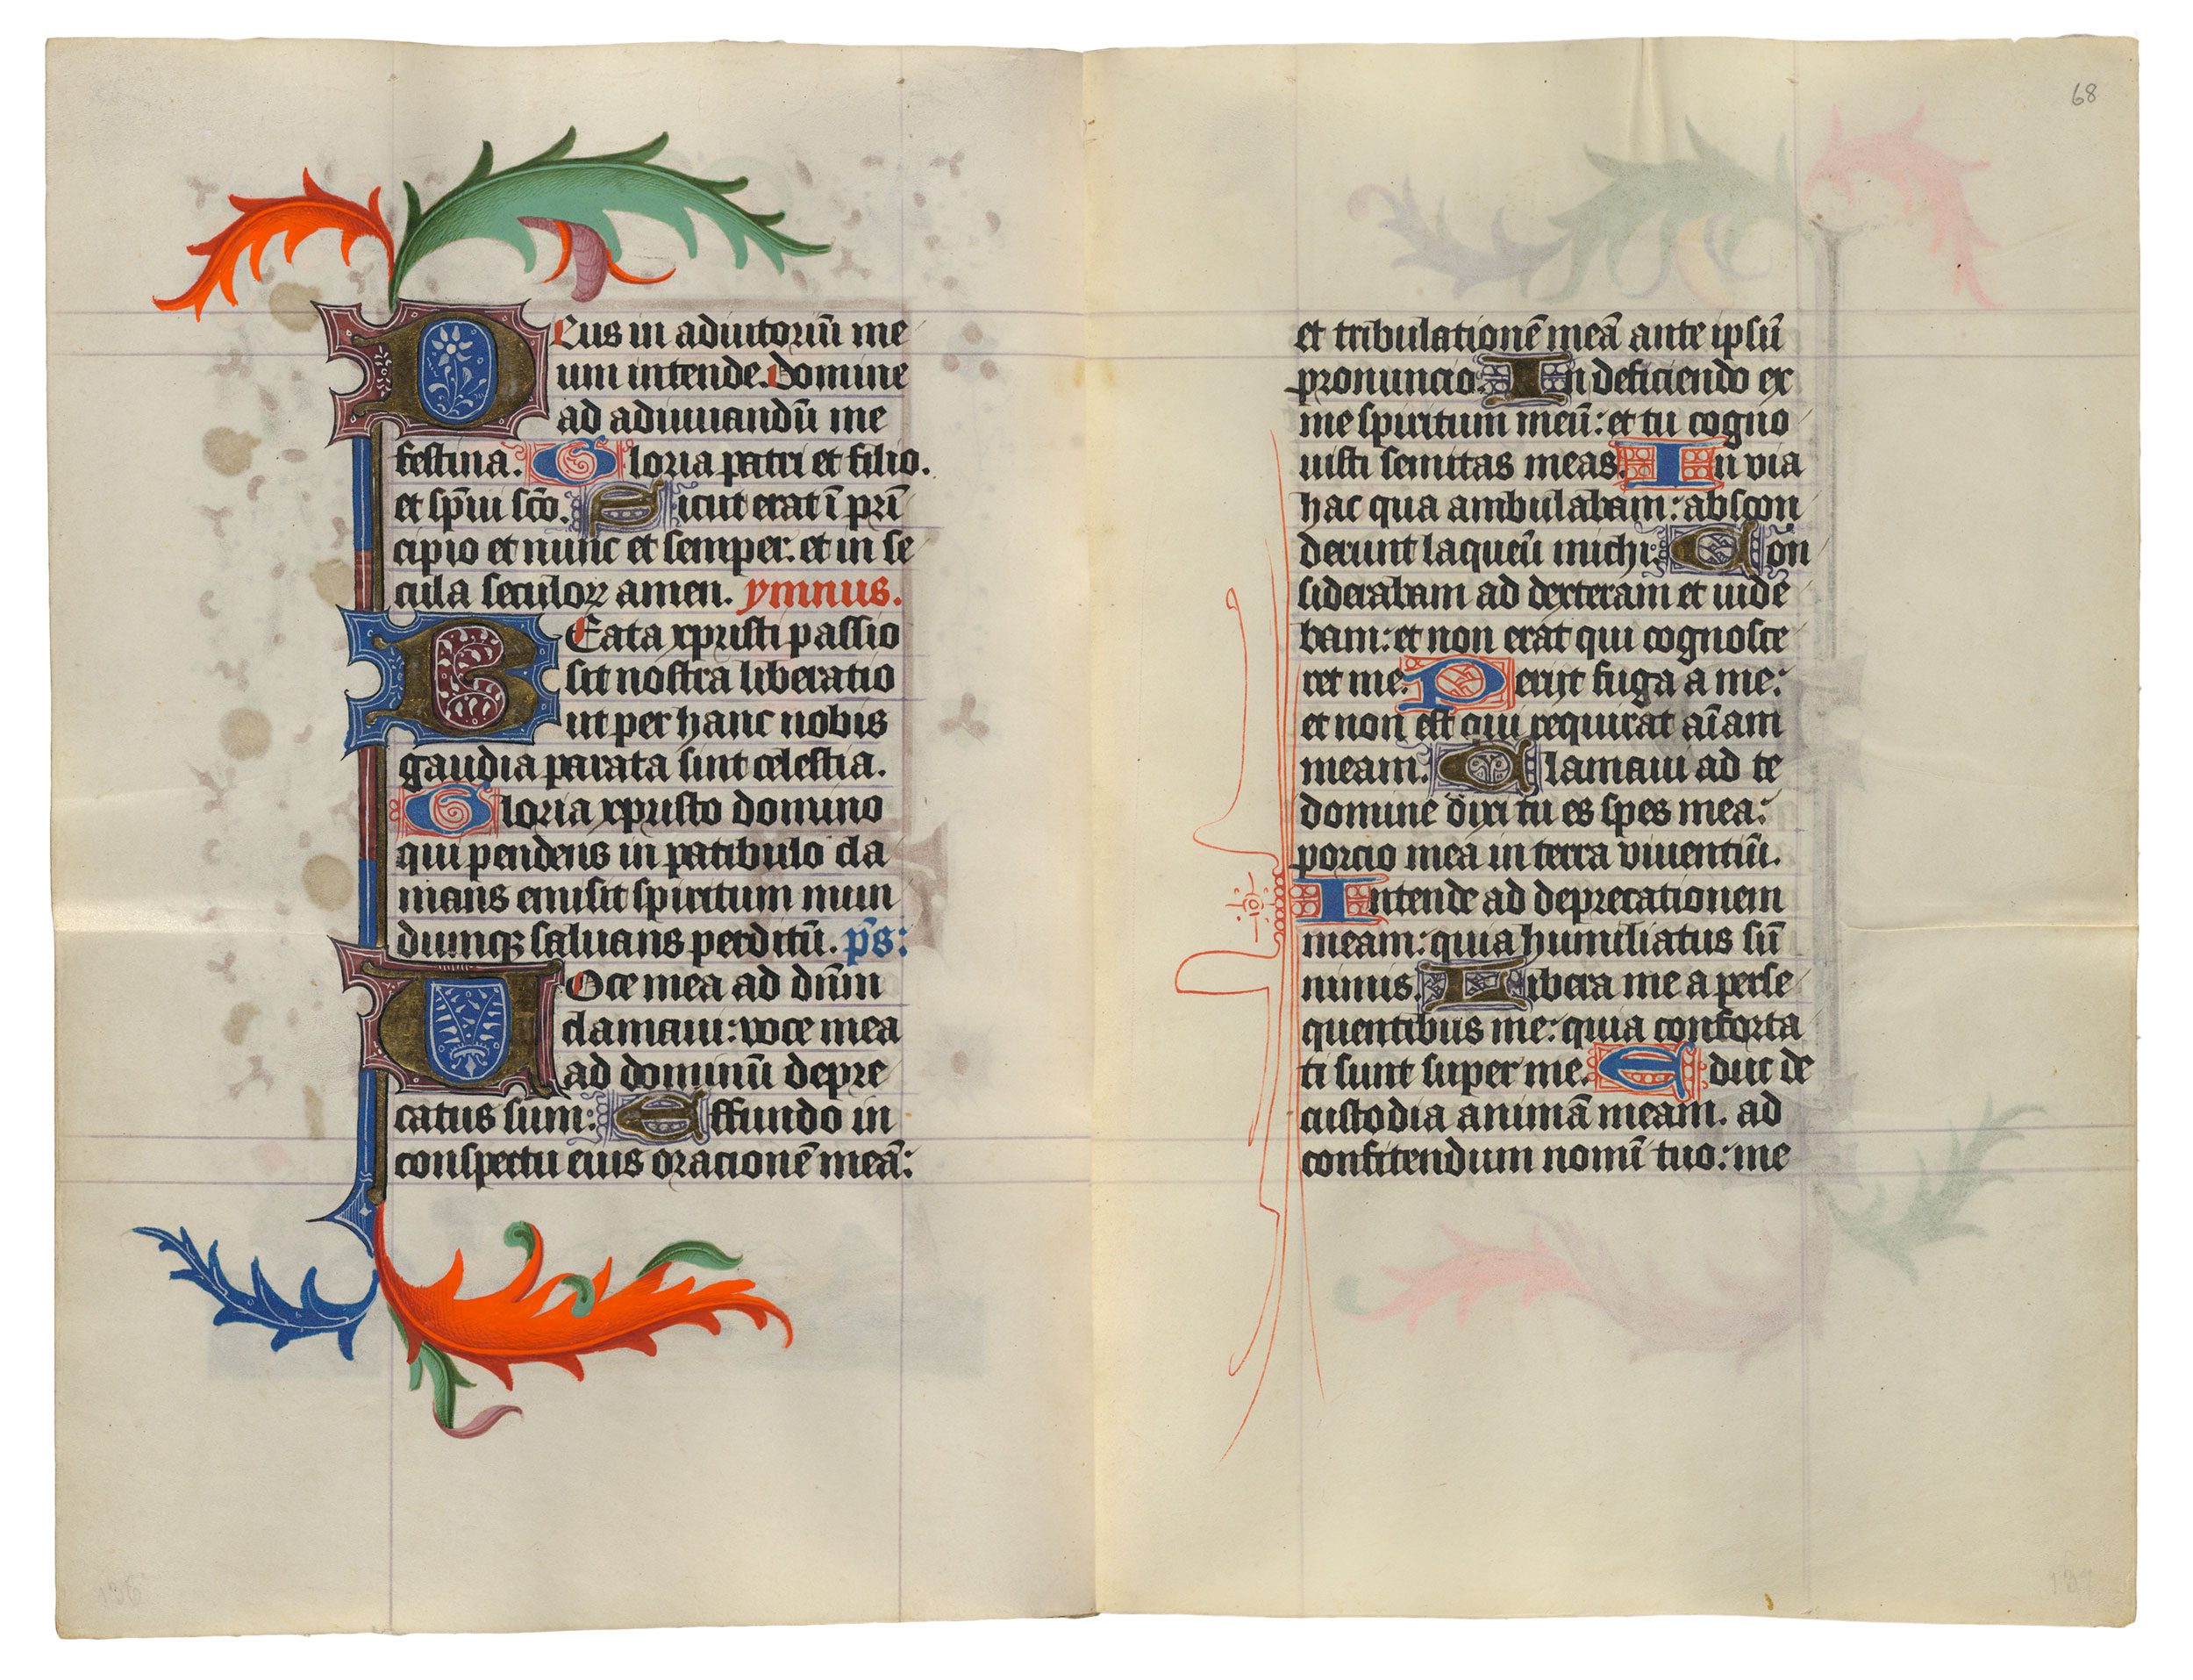 Deus in adiutoriū me
um intende. Domine
ad adiuuandū me
festina. Gloria patri et filio.
et sp̄iui sc̄o. Sicut erat ī prī
cipio et nunc et semper. et in se
cula seculoꝝ amen. ymnus.
Beata xpristi passio
sit nostra liberatio
ut per hanc nobis
gaudia parata sint celestia.
Gloria xpristo domino
qui pendens in patibulo cla
mans emisit spiritum mun
dumqꝫ saluans perditū. p̄s:
Voce mea ad dn̄m
clamaui: voce mea
ad dominū depre
catus sum: Effundo in
conspectu eius oracionē meā:
68
et tribulationē meā ante ipsū
pronuncio. In deficiendo ex
me spiritum meū: et tu cogno
uisti semitas meas. In via
hac qua ambulabam: abscon
derunt laqueū michi: Con
siderabam ad dexteram et uide
bam: et non erat qui cognosce
ret me. Periit fuga a me:
et non est qui requirat aīam
meam. Clamaui ad te
domine dixi tu es spes mea:
porcio mea in terra viuentiū.
Intende ad deprecationem
meam: quia humiliatus sū
nimis. Libera me a perse
quentibus me: quia conforta
ti sunt super me. Educ de
custodia animā meam. ad
confitendum nomī tuo: me
136